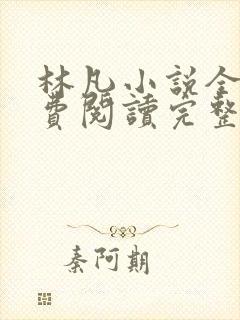 林凡小說全
費閱讀完整
秦阿期